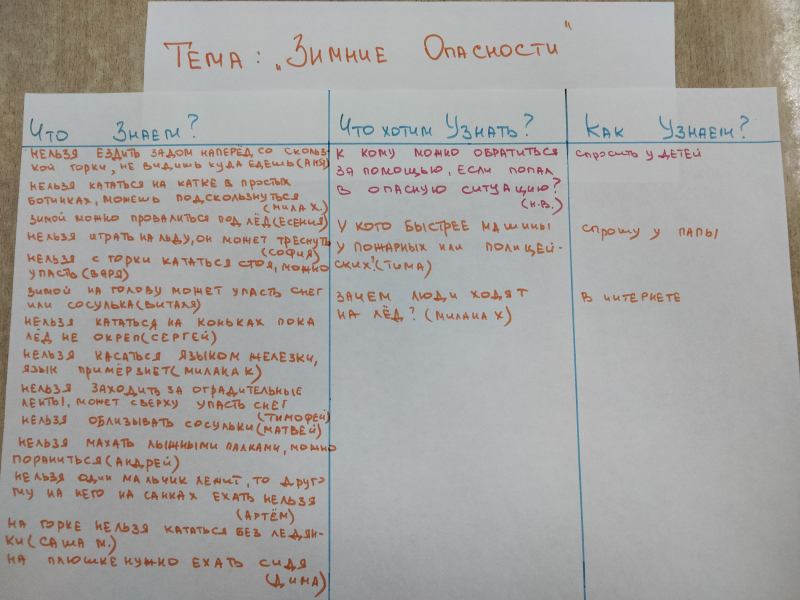 Тема: „Зимние Опасности"
Что Знаем?
нельзя ездить задом наперёд со скольз-
кой горки, не видишь куда едешь (Аня)
нельзя кататься на катке в простых
ботинках, можешь подскользнуться
(Мила Х.)
зимой можно провалиться под лёд (Есения)
нельзя играть на льду, он может треснуть
(София)
нельзя с горки кататься стоя, можно
упасть (Варя)
зимой на голову может упасть снег
или сосулька (Виталя)
нельзя кататься на коньках пока
лёд не окреп (Сергей)
нельзя касаться языком железки,
язык примёрзнет (Милана К)
нельзя заходить за оградительные
ленты, может сверху упасть снег
(Тимофей)
нельзя облизывать сосульки (Матвей)
нельзя махать лыжными палками, можно
пораниться (Андрей)
нельзя один мальчик лежит, то друго
му на него на санках ехать нельзя
(Артём)
на горке нельзя кататься без ледян-
ки (Саша М.)
на плюшке нужно ехать сидя
(Дима)
Что хотим Узнать?
к кому можно обратиться
за помощью, если попал
в опасную ситуацию?
(Н.В.)
у кого быстрее машины
у пожарных или полицей-
ских? (Тима)
зачем люди ходят
на лёд? (Милана Х)
Как Узнаем?
спросить у детей
спрошу у папы
в интернете